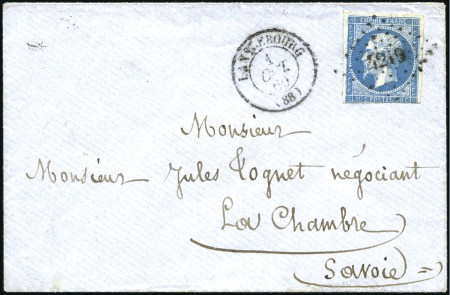 LANSLEBOURG
4
OCT.
(88)
EMPIRE FRANC.
4249
20 C POSTES 20 C
Monsieur
Monsieur Jules Toquet négociant
La Chambre
Savoie